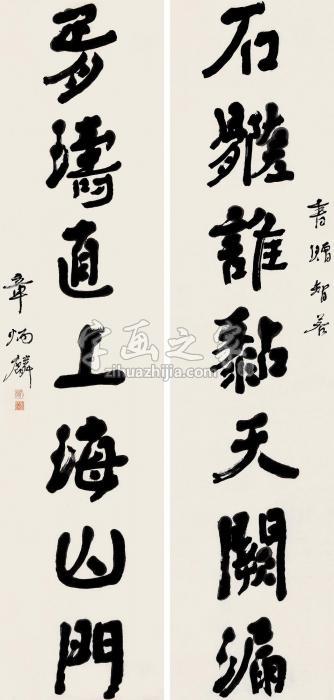 石髓誰黏天闕漏
書贈智
胥濤直上海山門
章炳麟
字画之家
zihuazhijia.com